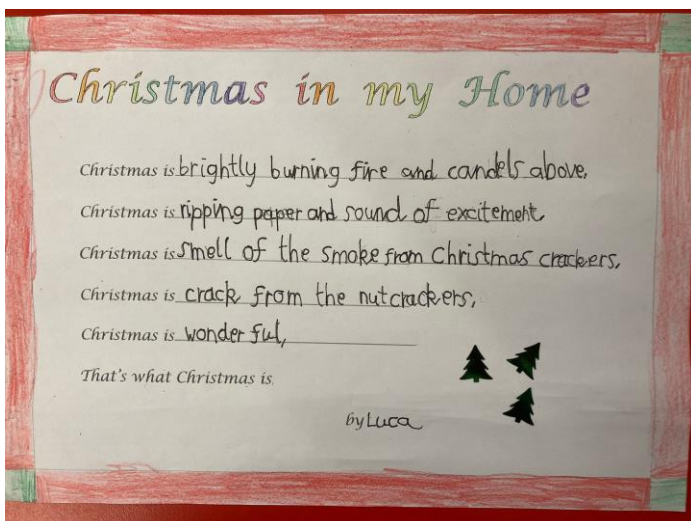 Christmas in my Home
Christmas is brightly burning fire and candels above,
Christmas is ripping paper and sound of excitement,
Christmas is smell of the smoke from Christmas crackers,
Christmas is crack from the nutcrackers,
Christmas is wonderful,
That's what Christmas is.
by Luca